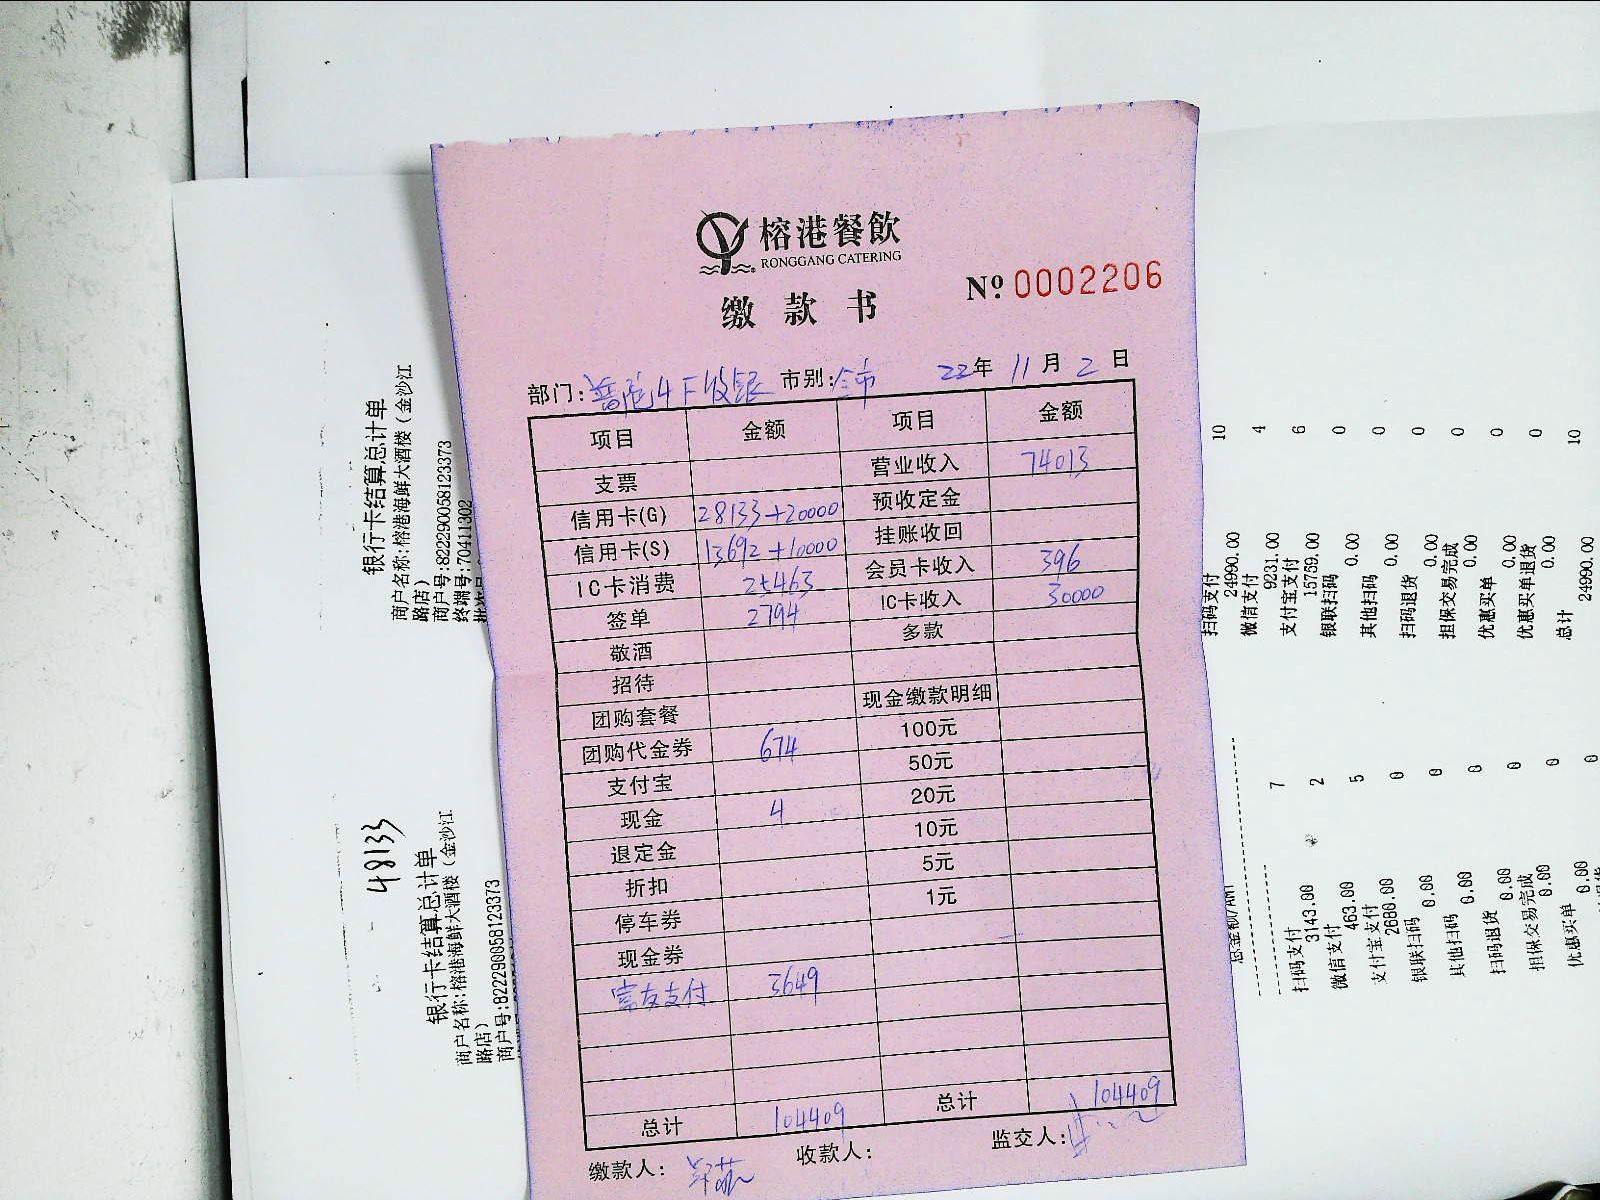 榕港餐飲
RONGGANG CATERING
缴款书
№ 0002206
部门:普陀4F收银 市别:全市 22年 11月 2日
项目 金额 项目 金额
支票 营业收入 74013
信用卡(G) 28133+20000 预收定金
信用卡(S) 13692+10000 挂账收回
IC卡消费 25463 会员卡收入 396
签单 2794 IC卡收入 30000
敬酒 多款
招待
团购套餐 现金缴款明细
团购代金券 674 100元
支付宝 50元
现金 4 20元
退定金 10元
折扣 5元
停车券 1元
现金券
支付 3649
总计 104409 总计 104409
缴款人: 收款人: 监交人:
银行卡结算总计单
商户名称:榕港海鲜大酒楼(金沙江
路店)
商户号:82229005812337​3
终端号:70411302
48133
银行卡结算总计单
商户名称:榕港海鲜大酒楼(金沙江
路店)
商户号:822290058123373
扫码支付 10
24990.00
微信支付 4
9231.00
支付宝支付 6
15759.00
银联扫码 0
0.00
其他扫码 0
0.00
扫码退货 0
0.00
担保交易完成 0
0.00
优惠买单 0
0.00
优惠买单退货 0
0.00
总计 10
24990.00
扫码支付 7
3143.00
微信支付 2
463.00
支付宝支付 5
2680.00
银联扫码 0
0.00
其他扫码 0
0.00
扫码退货 0
0.00
担保交易完成 0
0.00
优惠买单 0
0.00